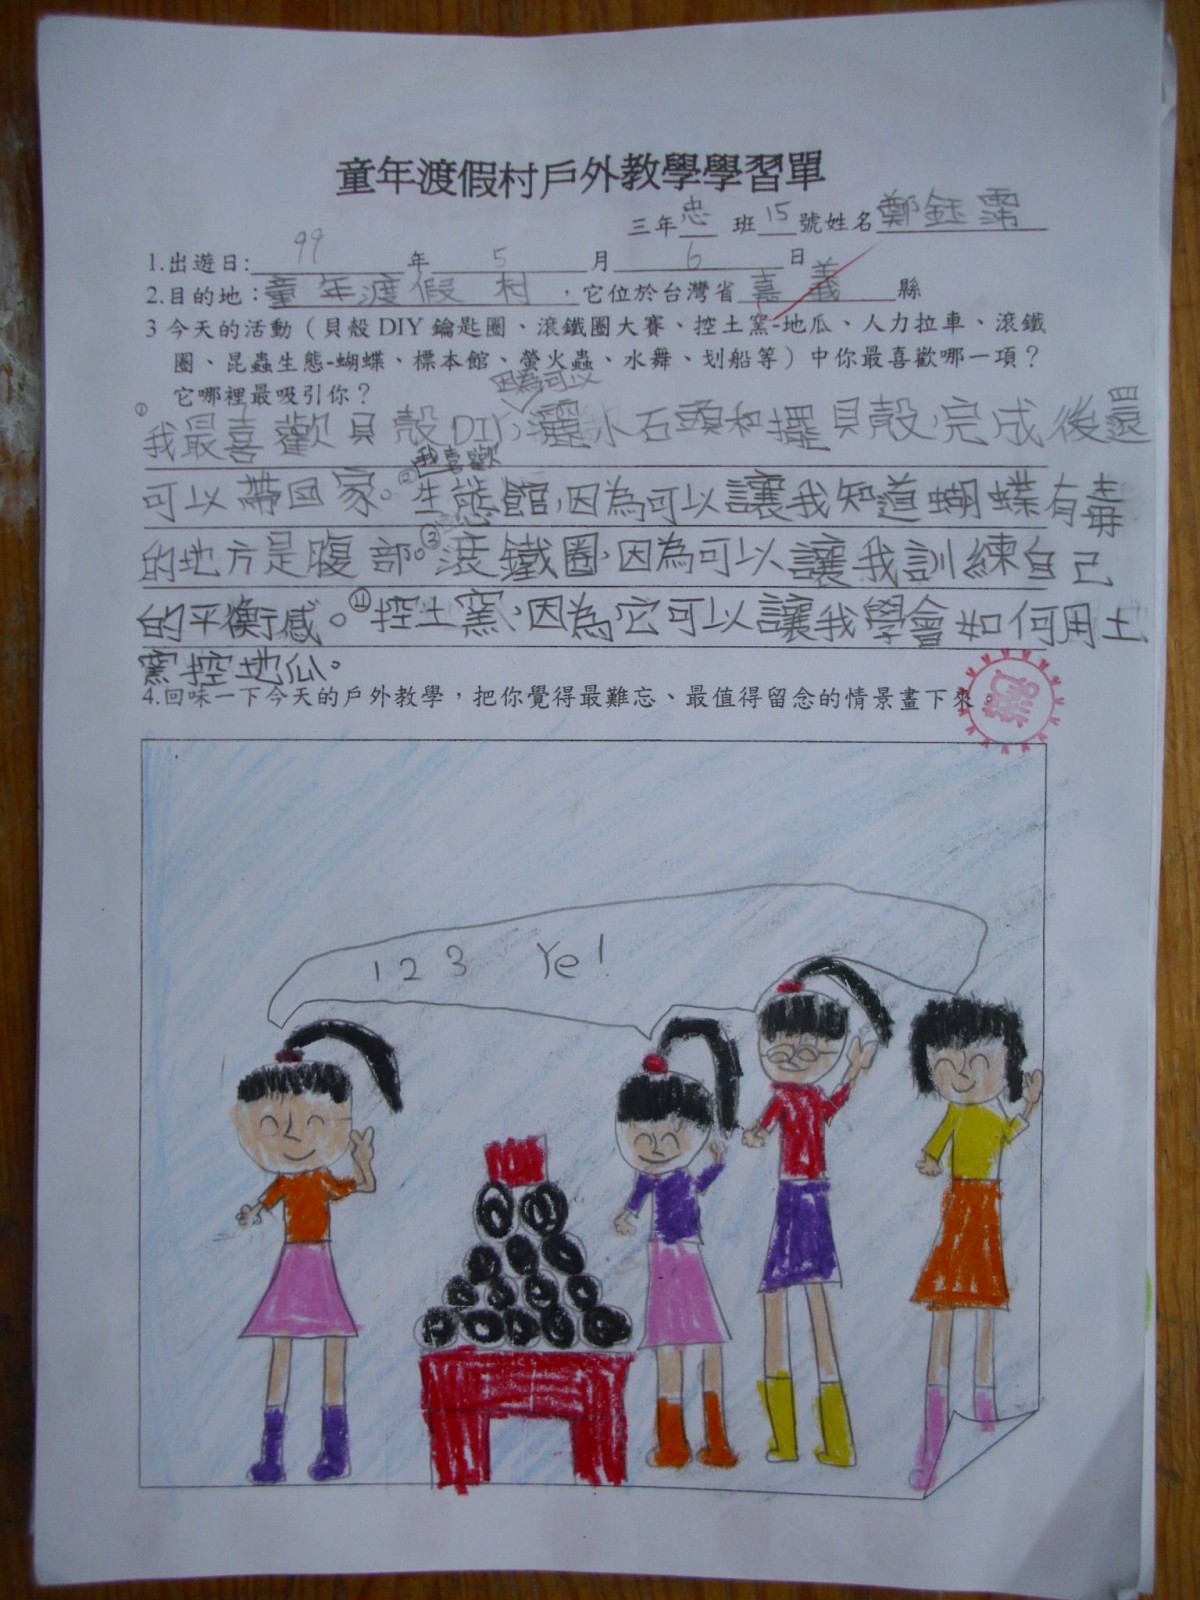 童年渡假村戶外教學學習單
三年忠班15號姓名鄭鈺霈
1.出遊日:99年5月6日
2.目的地：童年渡假村，它位於台灣省嘉義縣
3 今天的活動（貝殼DIY鑰匙圈、滾鐵圈大賽、控土窯-地瓜、人力拉車、滾鐵
圈、昆蟲生態-蝴蝶、標本館、螢火蟲、水舞、划船等）中你最喜歡哪一項？
它哪裡最吸引你？
因為可以
①我最喜歡貝殼DIY，灑水石頭和擺貝殼，完成後還
我喜歡
可以帶回家。②生態館，因為可以讓我知道蝴蝶有毒
的地方是腹部。③滾鐵圈，因為可以讓我訓練自己
的平衡感。④控土窯，因為它可以讓我學會如何用土
窯控地瓜。
4.回味一下今天的戶外教學，把你覺得最難忘、最值得留念的情景畫下來。
1 2 3 Ye!